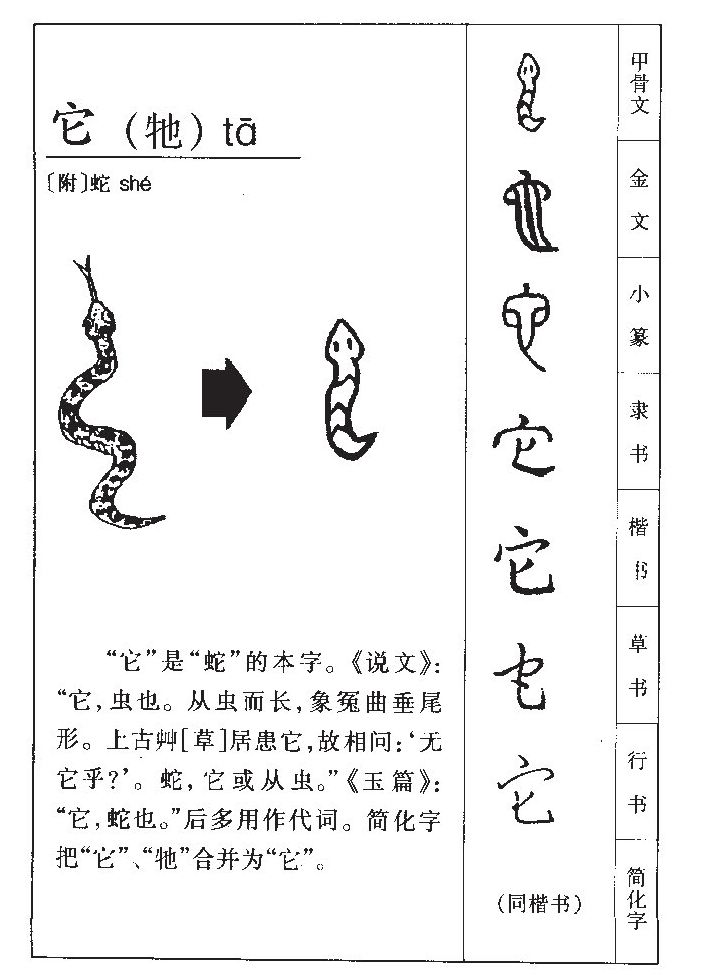 它（牠）tā
〔附〕蛇 shé
“它”是“蛇”的本字。《说文》：
“它，虫也。从虫而长，象冤曲垂尾
形。上古艸[草]居患它，故相问：‘无
它乎？’。蛇，它或从虫。”《玉篇》：
“它，蛇也。”后多用作代词。简化字
把“它”、“牠”合并为“它”。
它
它
它
它
它
它
它
（同楷书）
甲骨文
金文
小篆
隶书
楷书
草书
行书
简化字